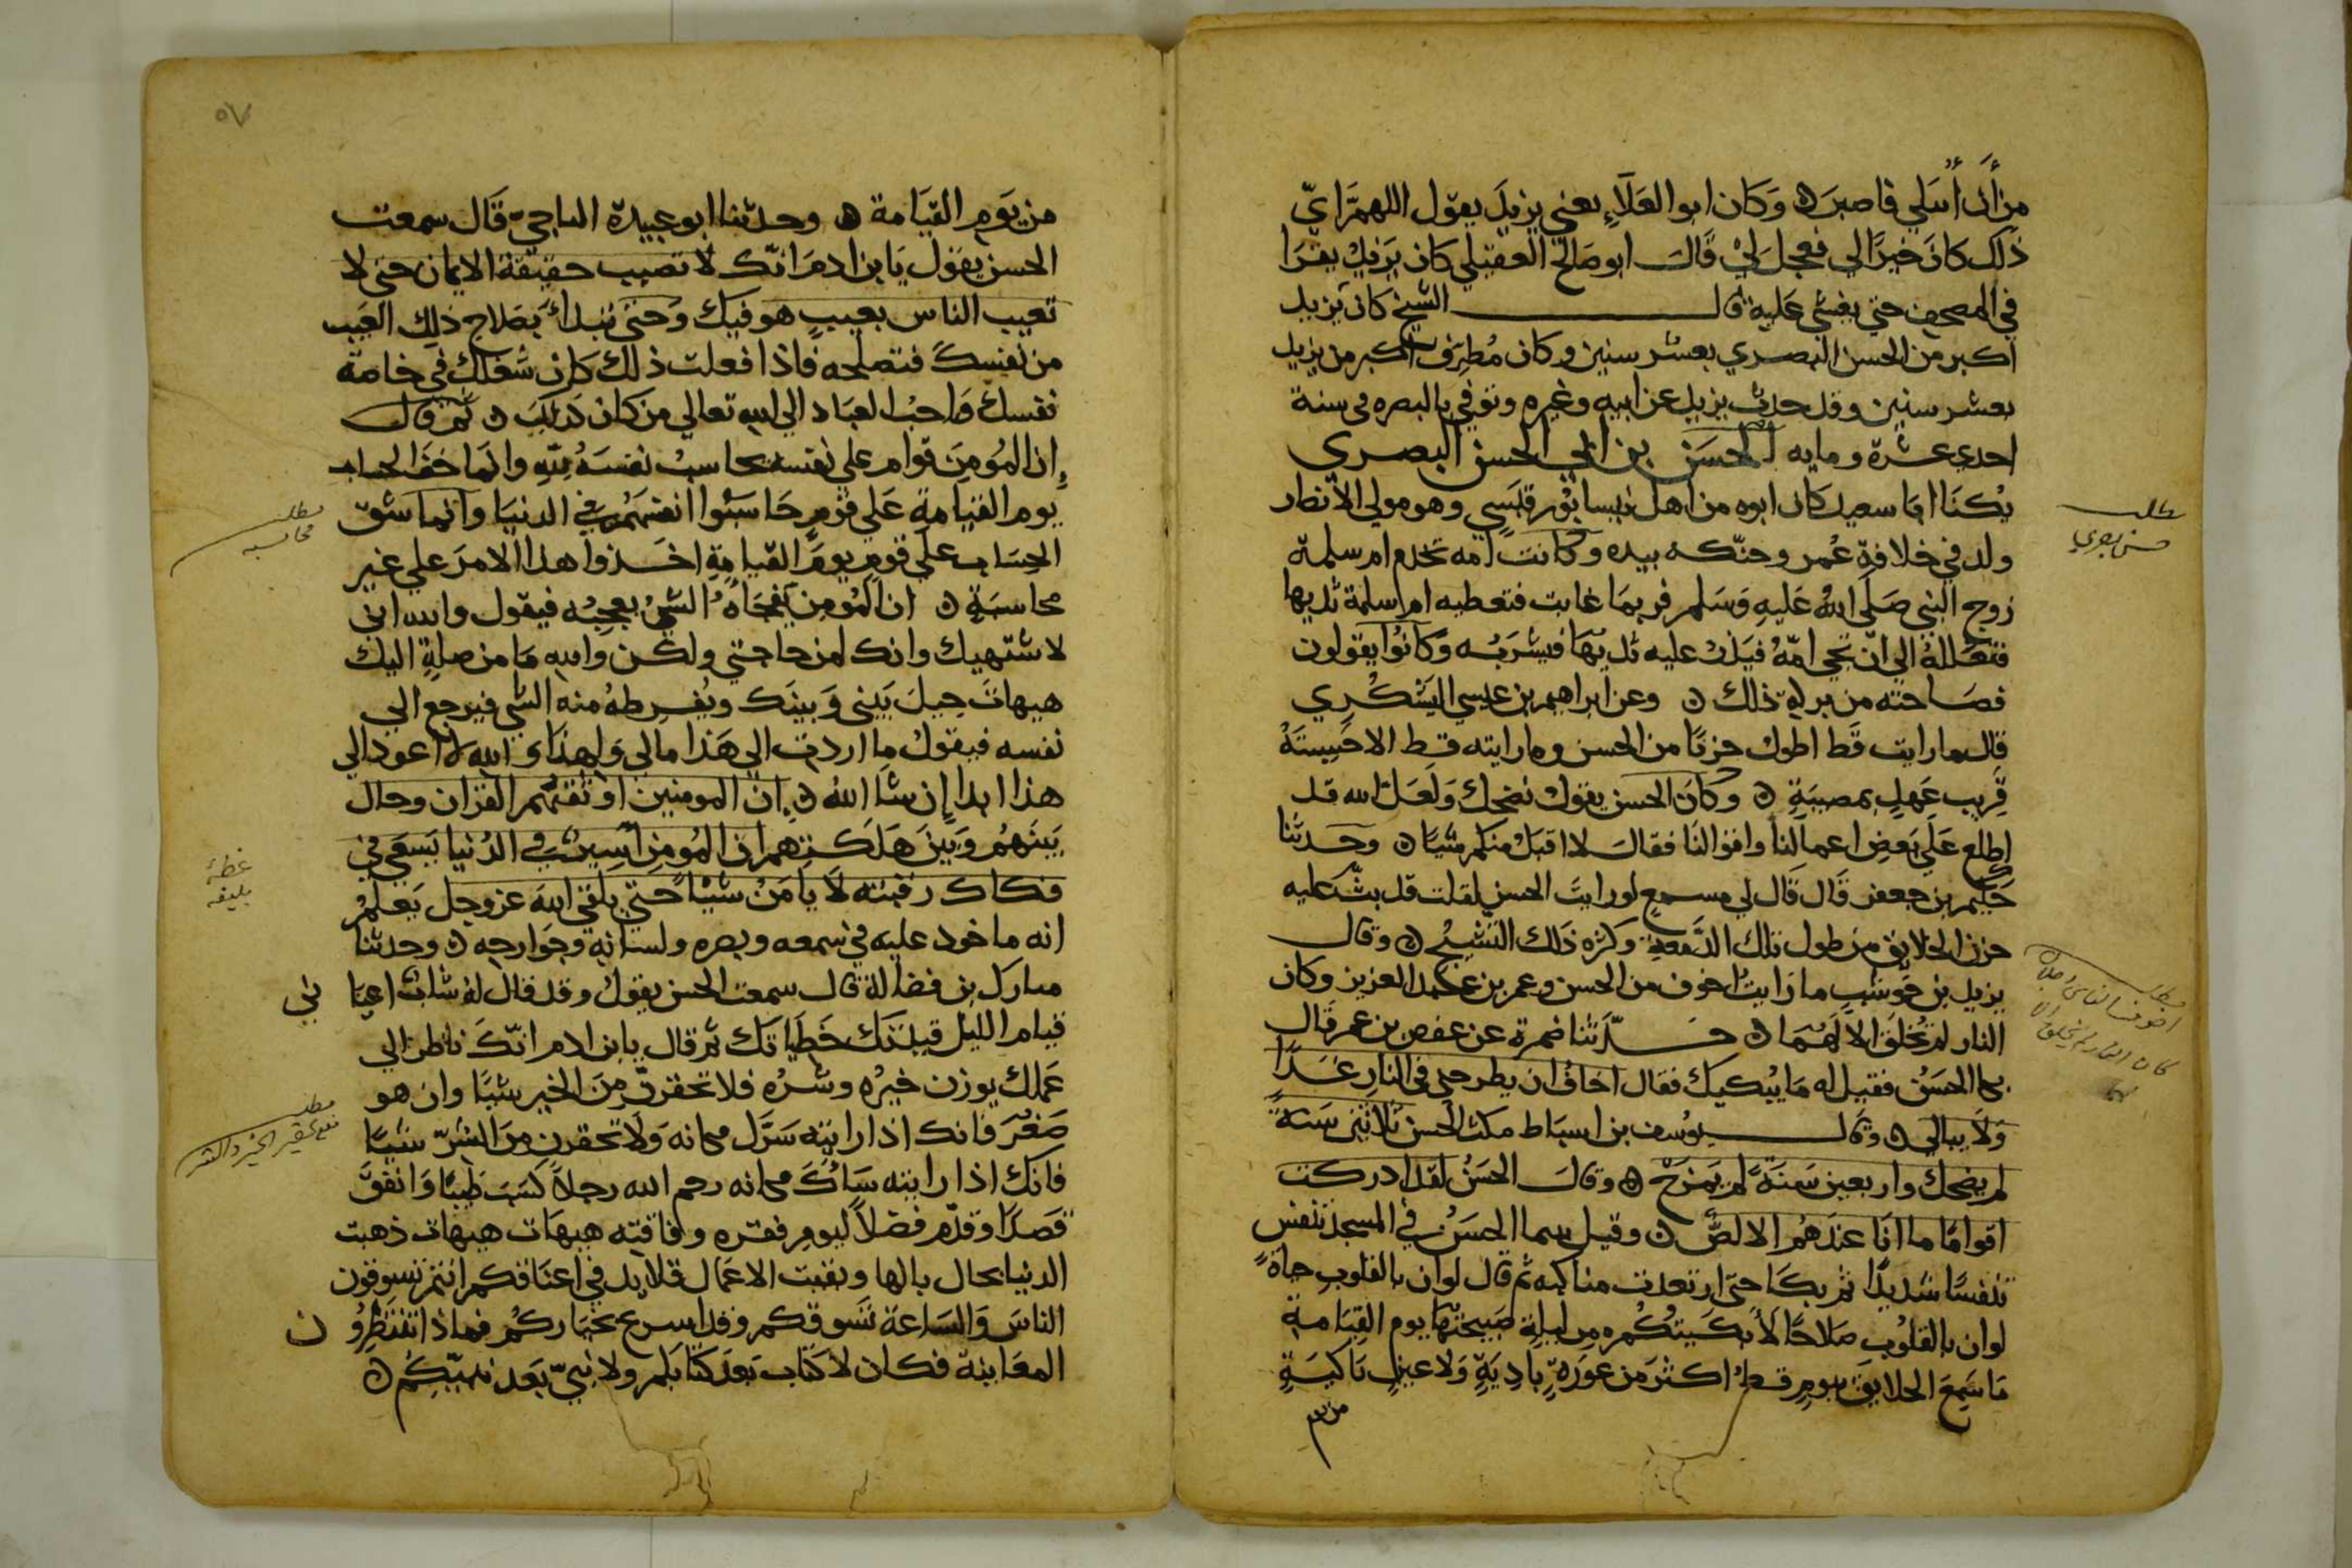 من أن أبتلي فاصبر ه وكان ابو العلاء يعني يزيد يقول اللهم اي
ذلك كان خيرا لي فعجل لي قال ابو صالح العقيلي كان يزيد يقرا
في المصحف حتي يغشي عليه قال الشيخ كان يزيد
اكبر من الحسن البصري بعشر سنين وكان مطرف اكبر من يزيد
بعشر سنين وقد حدث يزيد عن ابيه وغيره وتوفي بالبصره في سنة
احدي عشرة ومايه الحسن بن ابي الحسن البصري
يكنا ابا سعيد كان ابوه من اهل وهو مولي الانصار
ولد في خلافة عمر وحنكه بيده وكانت امه تخدم ام سلمة
زوج النبي صلي الله عليه وسلم فربما غابت فتعطيه ام سلمة ثديها
فتعلله الي ان تجي امه فيدر عليه ثديها فيشربه وكانوا يقولون
فصاحته من بركة ذلك ه وعن ابراهيم بن عيسي اليشكري
قال ما رايت قط اطول حزنا من الحسن وما رايته قط الا حسبته
قريب عهد بمصيبة ه وكان الحسن يقول نضحك ولعل الله قد
اطلع علي بعض اعمالنا وافوالنا فقال لا اقبل منكم شيا ه وحدثنا
حكيم بن جعفر قال قال لي مسمع لو رايت الحسن لقلت قد بث عليه
حزن الخلايق من طول تلك الدمعة وكثره ذلك النشيج ه وقال
يزيد بن حوشب ما رايت اخوف من الحسن وعمر بن عبد العزيز وكان
النار لم تخلق الا لهما ه حدثنا ضمرة عن حفص بن عمر قال
بكا الحسن فقيل له ما يبكيك فقال اخاف ان يطرحني في النار غدا
ولا يبالي ه وقال يوسف بن اسباط مكث الحسن ثلاثين سنة
لم يضحك واربعين سنة لم يمزح ه وقال الحسن لقد ادركت
اقواما ما انا عندهم الا لص ه وقيل بينما الحسن في المسجد تنفس
تنفسا شديدا ثم بكا حتى ارتعدت مناكبه ثم قال لو ان بالقلوب حياة
لو ان بالقلوب صلاحا لابكيتكم من ليلة صبيحتها يوم القيامة
ما سمع الخلايق بيوم قط اكثر من عورة بادية ولا عين باكية
من يوم
مطلب
حسن بصري
مطلب
من يوم القيامة ه وحدثنا ابو عبيدة الناجي قال سمعت
الحسن يقول يا بن ادم انك لا تصيب حقيقة الايمان حتي لا
تعيب الناس بعيب هو فيك وحتى تبدأ بصلاح ذلك العيب
من نفسك فتصلحه فاذا فعلت ذلك كان شغلك في خاصة
نفسك واحب العباد الي الله تعالي من كان كذلك ه ثم قال
إن المؤمن قوام علي نفسه يحاسب نفسه لله وانما خف الحساب
يوم القيامة علي قوم حاسبوا انفسهم في الدنيا وانما شق
الحساب علي قوم يوم القيامة اخذوا هذا الامر علي غير
محاسبة ه ان المؤمن يفجأه الشي يعجبه فيقول والله اني
لاشتهيك وانك لمن حاجتي ولكن والله ما من صلة اليك
هيهات حيل بيني وبينك ويفرط منه الشي فيرجع الي
نفسه فيقول ما اردت الي هذا مالي ولهذا والله لا اعود الي
هذا ابدا إن شا الله ه إن المومنين اوثقهم القران وحال
بينهم وبين هلكتهم ان المؤمن اسير في الدنيا يسعي في
فكاك رقبته لا يامن شيا حتي يلقي الله عز وجل يعلم
انه ماخوذ عليه في سمعه وبصره ولسانه وجوارحه ه وحدثنا
مبارك بن فضالة قال سمعت الحسن يقول وقد قال له شاب اعيا ني
قيام الليل قيدتك خطاياك ثم قال يا بن ادم انك ناظر الي
عملك يوزن خيره وشره فلا تحقرن من الخير شيا وان هو
صغر فانك اذا رايته سرك مكانه ولا تحقرن من الشر شيا
فانك اذا رايته ساك مكانه رحم الله رجلا كسب طيبا وانفق
قصدا وقدم فضلا ليوم فقره وفاقته هيهات هيهات ذهبت
الدنيا بحال بالها وبقيت الاعمال قلايد في اعناقكم انتم تسوقون
الناس والساعة تسوقكم وقد اسرع بخياركم فماذا تنتظرو ن
المعاينة فكان لا كتاب بعد كتابكم ولا نبي بعد نبيكم ه
مطلب
محاسبه
مطلب